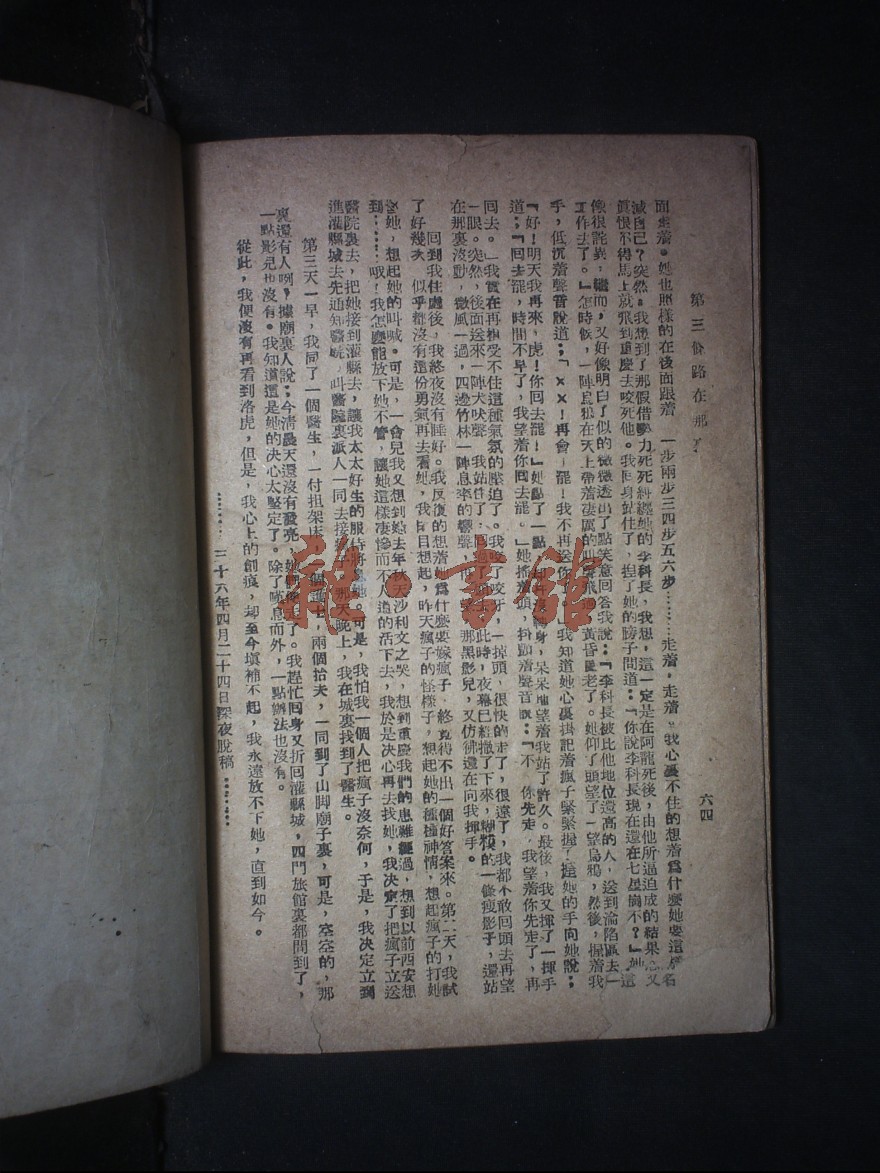 第三條路在那了
六四
面走着。她也照樣的在後面跟着 一步兩步三四步五六步………走着,走着。我心裏不住的想着爲什麼她要這樣名
滅自己?突然 我想到了那假借勢力死死糾纏她的李科長,我想,這一定是在阿龍死後,由他所逼迫成的結果 又
眞恨不得馬上就飛到重慶去咬死他。我回身站住了,捏了她的膀子問道:「你說李科長現在還在七星崗不?」她
像很詫異,繼而,又好像明白了似的微微透出了點笑意回答我說:「李科長被比他地位還高的人,送到淪陷區去
工作去了。」怎時候,一陣烏鴉在天上帶着淒厲的叫聲飛過 黃昏 老了。她仰了頭望了一望烏鴉,然後,握着我
手,低沉着聲音說道;「××!再會 罷!我不再送你了 」我知道她心裏掛記着瘋子緊緊握了 她的手向她說:
「好!明天我再來,虎!你回去罷!」她點了一點 身,呆呆 望着我站了許久。最後,我又揮了一揮手
道:「回去罷,時間不早了,我望着你回去罷。」她搖搖頭, 着聲音 :「不 你先走 我望着你先走了,再
回去。」我實在再担受不住這種氣氛的壓迫了。我咬了咬牙,一掉頭,很快的走了,很遠了,我都不敢回頭去再望
一眼。突然,後面送來一陣犬吠聲 我站住了 此時,夜幕已經撤了下來,糢糊的一條瘦影子,還站
在那裏沒動,微風一過,四邊竹林一陣息率的響聲, 望 那黑影兒,又仿彿還在向我揮手。
回到我住處後,我終夜沒有睡好。我反復的想着她爲什麼要嫁瘋子 終竟得不出一個好答案來。第二天,我試
了好幾次 似乎都沒有這份勇氣再去看她,我 目想起,昨天瘋子的怪樣子,想起她的種種神情,想起瘋子的打她
 她,想起她的叫喊。可是,一會兒我又想到她去年秋天沙利文之哭,想到重慶我們的患難經過,想到以前西安想
到……哦!我怎麼能放下她不管,讓她這樣凄慘而不人道的活下去,我於是决心再去找她,我决定了把瘋子立送
醫院裏去,把她接到灌縣去,讓我太太好生的服侍將 她。可是,我怕我一個人把瘋子沒奈何,于是,我决定立到
進灌縣城去先通知醫院,叫醫院裏派人一同去接 那天晚上,我在城裏找到了醫生。
第三天一早,我同了一個醫生,一付担架床, 個護士,兩個抬夫,一同到了山脚廟子裏,可是,空空的,那
裏還有人啊?據廟裏人說;今清晨天還沒有發亮,她 走了。我趕忙回身又折回灌縣城,四門旅館裏都問到了,
一點影兒也沒有。我知道這是她的决心太堅定了。除了嘆息而外,一點辦法也沒有。
從此,我便沒有再看到洛虎,但是,我心上的創痕,却至今填補不起,我永遠放不下她,直到如今。
………三十六年四月二十四日深夜脫稿………
雜·書館